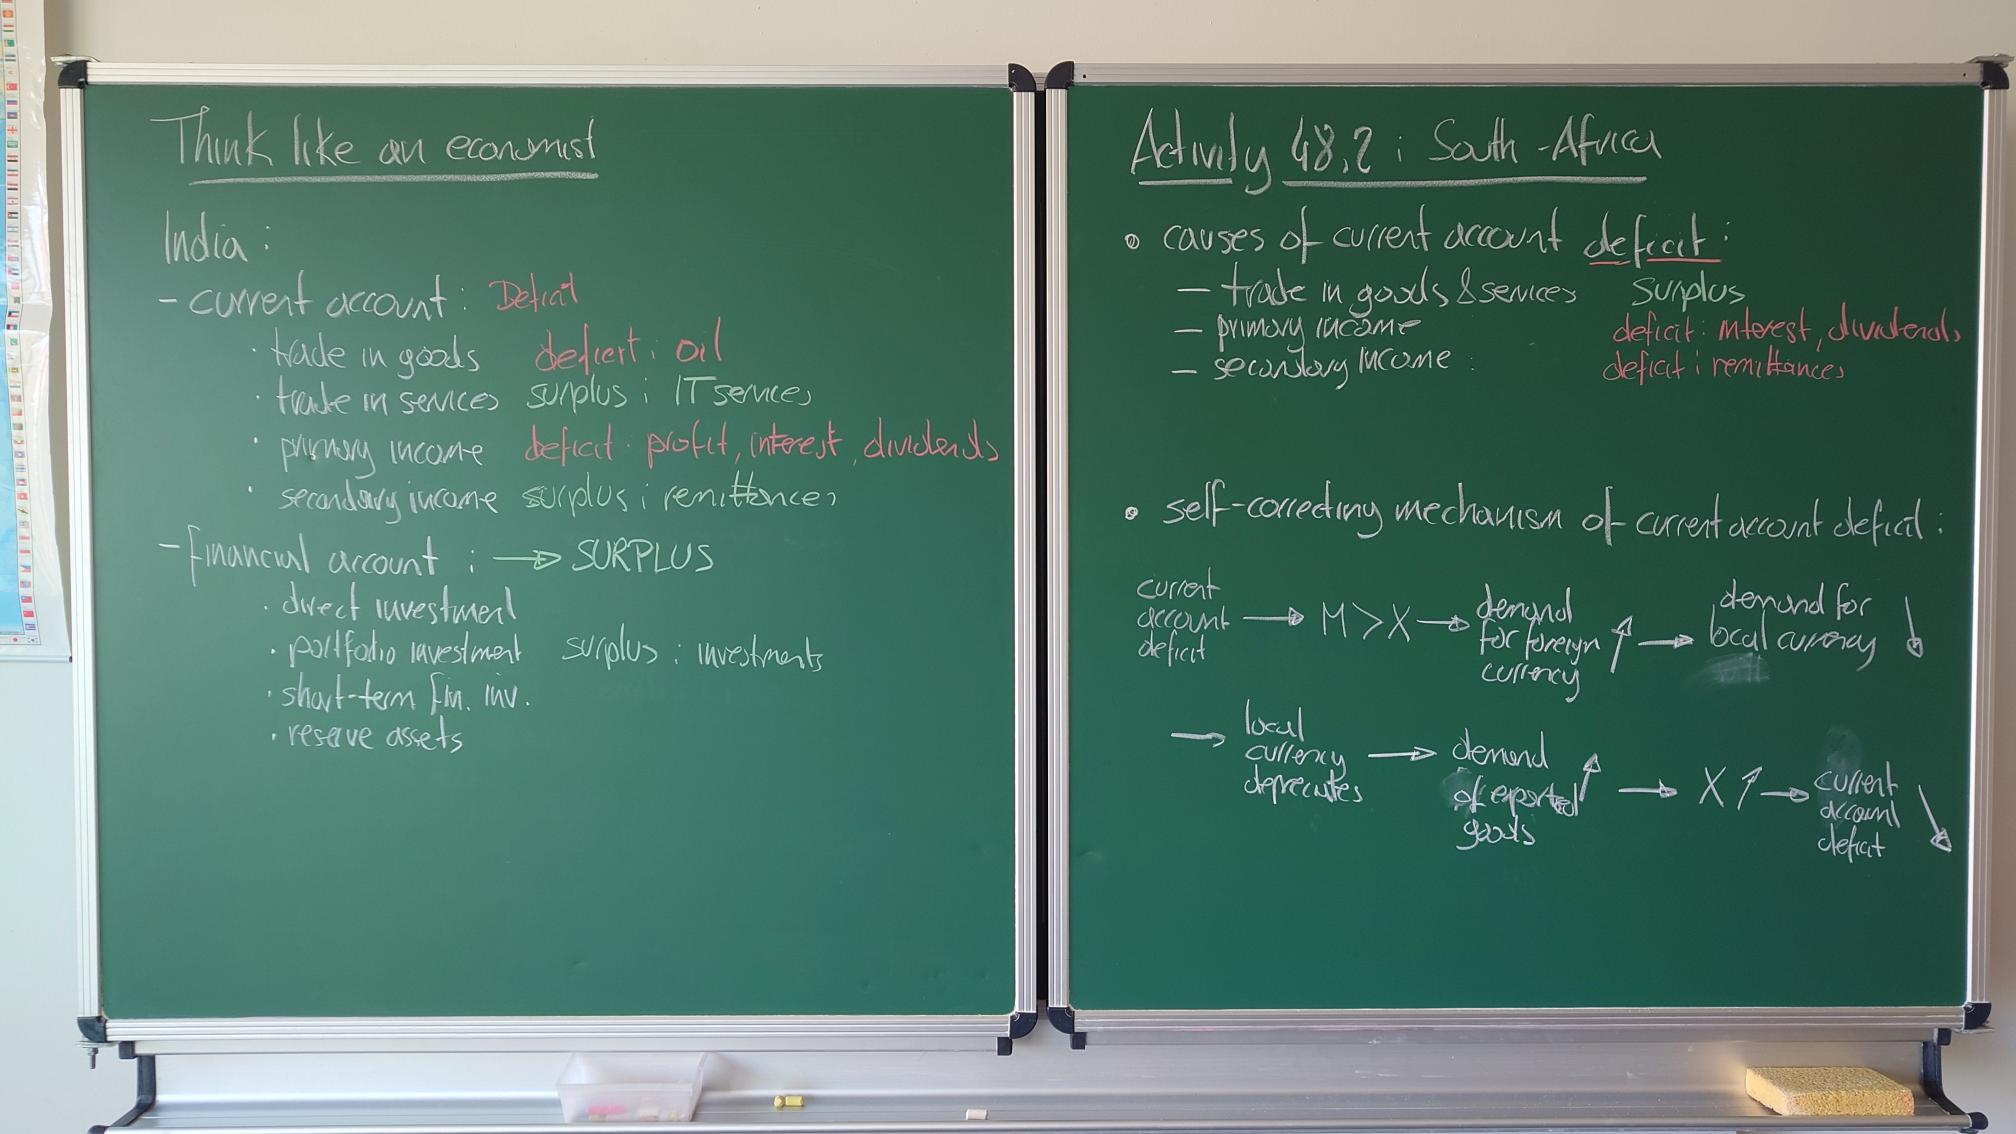 Think like an economist
India :
- current account : Deficit
· trade in goods deficit : oil
· trade in services surplus : IT services
· primary income deficit : profit, interest, dividends
· secondary income surplus : remittances
- Financial account : → SURPLUS
· direct investment
· portfolio investment surplus : investments
· short-term fin. inv.
· reserve assets
Activity 48.2 : South-Africa
• causes of current account deficit :
- trade in goods & services surplus
- primary income deficit : interest, dividends
- secondary income : deficit : remittances
• self-correcting mechanism of current account deficit :
current
account
deficit
→ M > X →
demand
for foreign ↑
currency
→
demand for
local currency ↓
→
local
currency
depreciates
→
demand
of exported ↑
goods
→ X ↑ →
current
account
deficit ↓